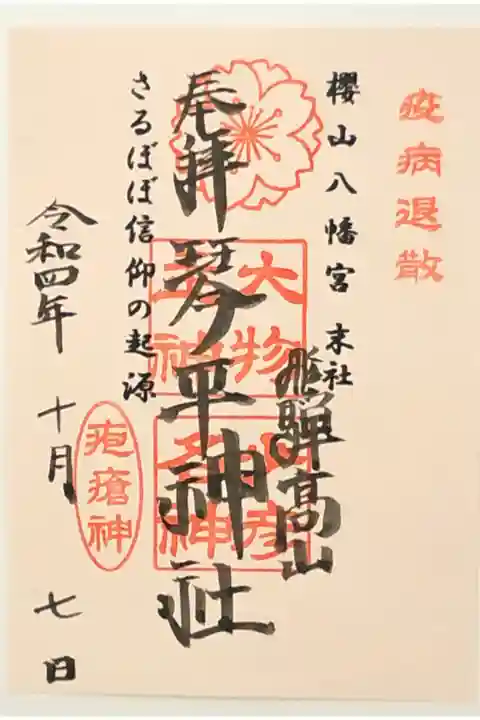 疫病退散
櫻山八幡宮 末社
飛騨高山
奉拝 琴平神社
大物
主神
さるぼぼ信仰の起源
疱瘡神
令和四年 十月 七日